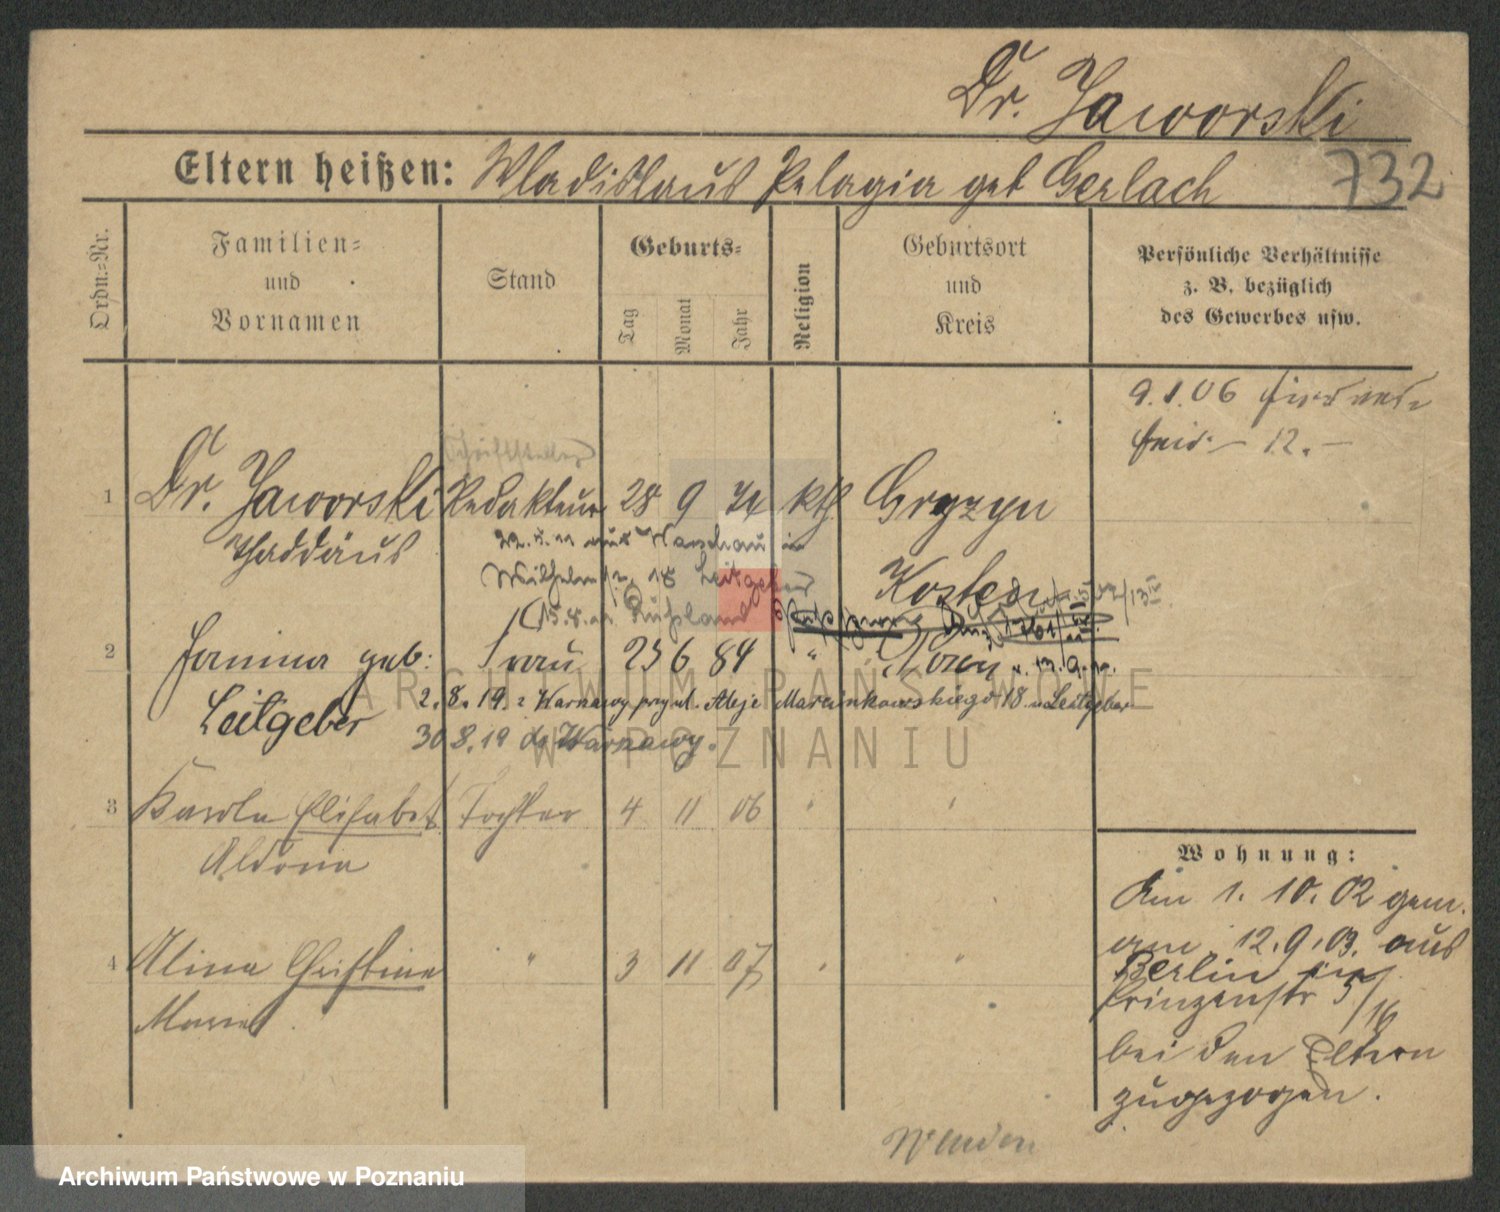 Dr. Jaworski
732
Eltern heißen: Wladislaus Pelagia geb Gerlach
Ordn.=Nr.
Familien=
und
Vornamen
Stand
Geburts=
Tag
Monat
Jahr
Religion
Geburtsort
und
Kreis
Persönliche Verhältnisse
z. B. bezüglich
des Gewerbes usw.
9.1.06
12.–
Schriftsteller
1 Dr. Jaworski Redakteur 28 9 74 kth Gryzyn
Thaddäus
aus Warschau in
18 Leitgeber
Kosten
15.8.11 Rußland
2 Janina geb: Frau 25 6 84 "
13.9.
Leitgeber
2.8.19. z Warszawy Aleje Marcinkowskiego 18 u Leitgeber
30 8.19 do Warszawy.
3 Karola Elisabet Tochter 4 11 06 " "
Aldona
4 Alina Christine " 3 11 07 " "
Maria
Wohnung:
Am 1. 10. 02 gem.
am 12.9.03. aus
Berlin
Prinzenstr 5/16
bei den Eltern
zugezogen.
Wenden
ARCHIWUM PAŃSTWOWE
W POZNANIU
Archiwum Państwowe w Poznaniu